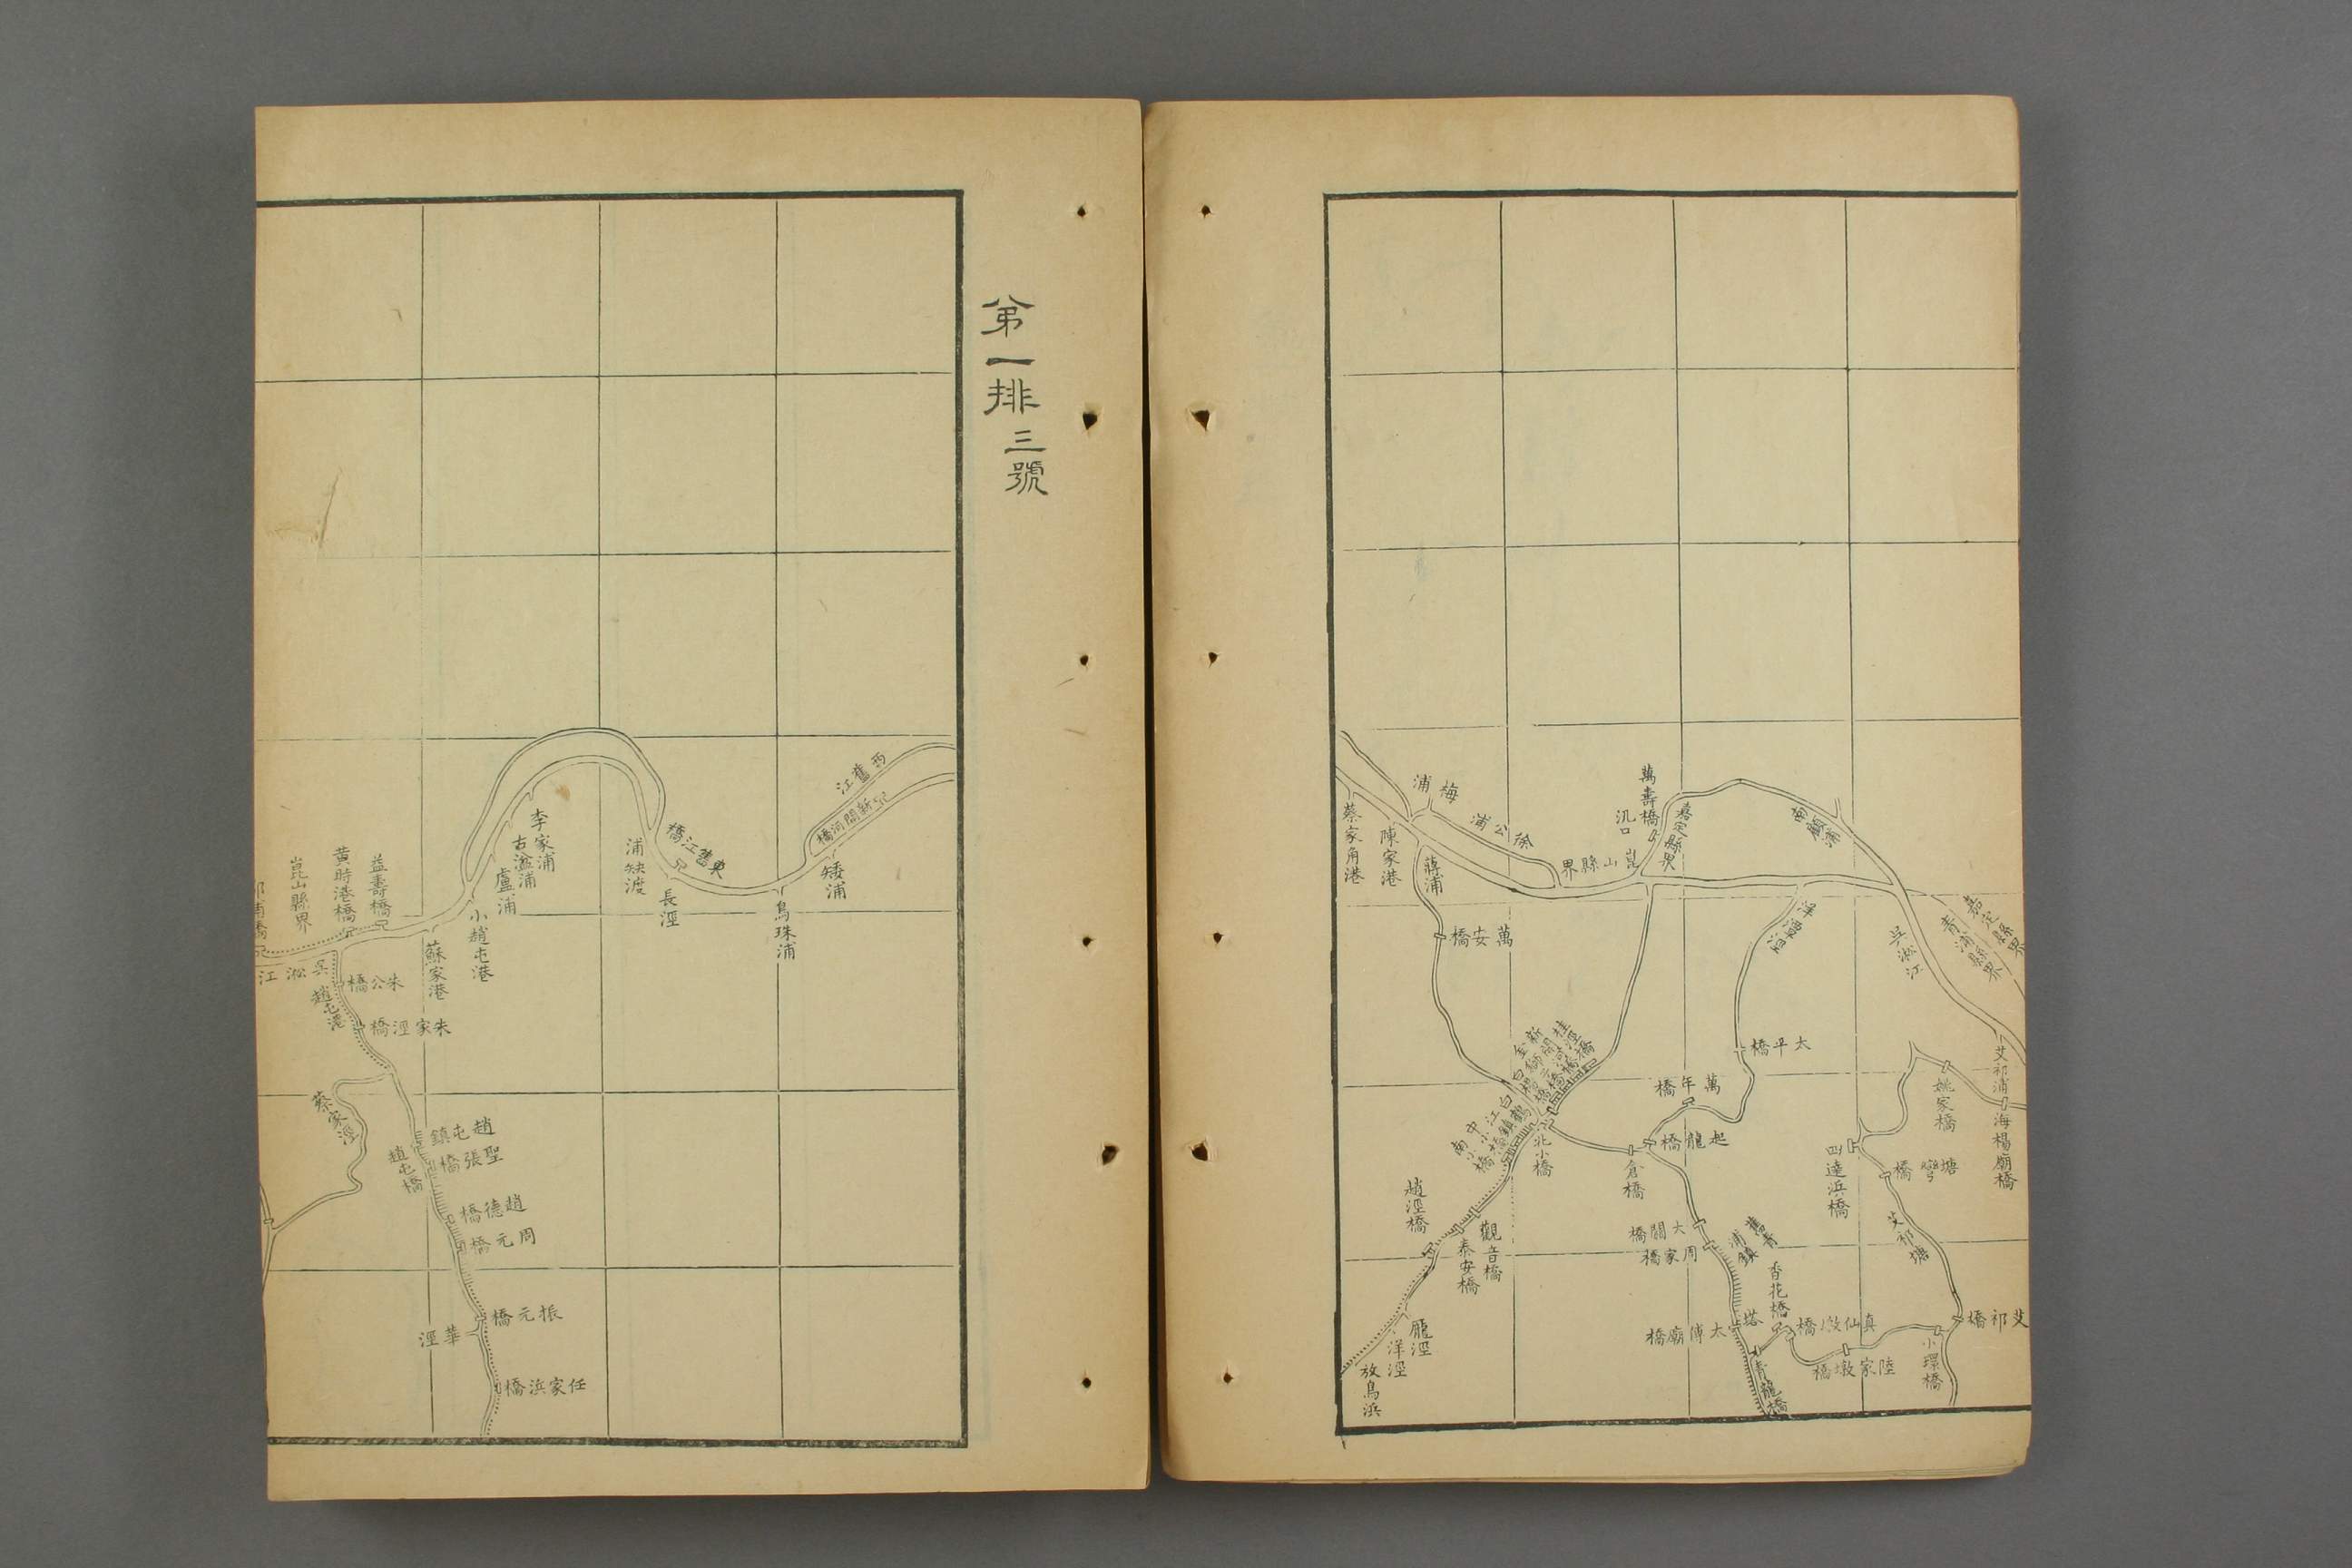 嘉定縣界
青浦縣界
吳淞江
南顧浦
艾祁浦
海楊廟橋
姚家橋
四達浜橋
塘灣橋
艾祁塘
艾祁橋
小環橋
陸家墩橋
真仙墩橋
香花橋
青龍橋
塔
太傅廟橋
舊青浦鎮
周家橋
大關橋
起龍橋
萬年橋
太平橋
倉橋
嘉定縣界
萬壽橋
崑山縣界
徐公浦
梅浦
蔣浦
陳家港
蔡家角港
萬安橋
北小橋
觀音橋
泰安橋
趙涇橋
龎涇
洋涇
放鳥浜
第一排三號
西舊江
新開河橋
矮浦
烏珠浦
東舊江橋
長涇
浦缺渡
李家浦
古盆浦
盧浦
小趙屯港
蘇家港
益壽橋
黃時港橋
崑山縣界
吳淞江
朱公橋
趙屯港
朱家涇橋
蔡家涇
趙屯鎮
聖張橋
趙屯橋
趙德橋
周元橋
振元橋
華涇
任家浜橋